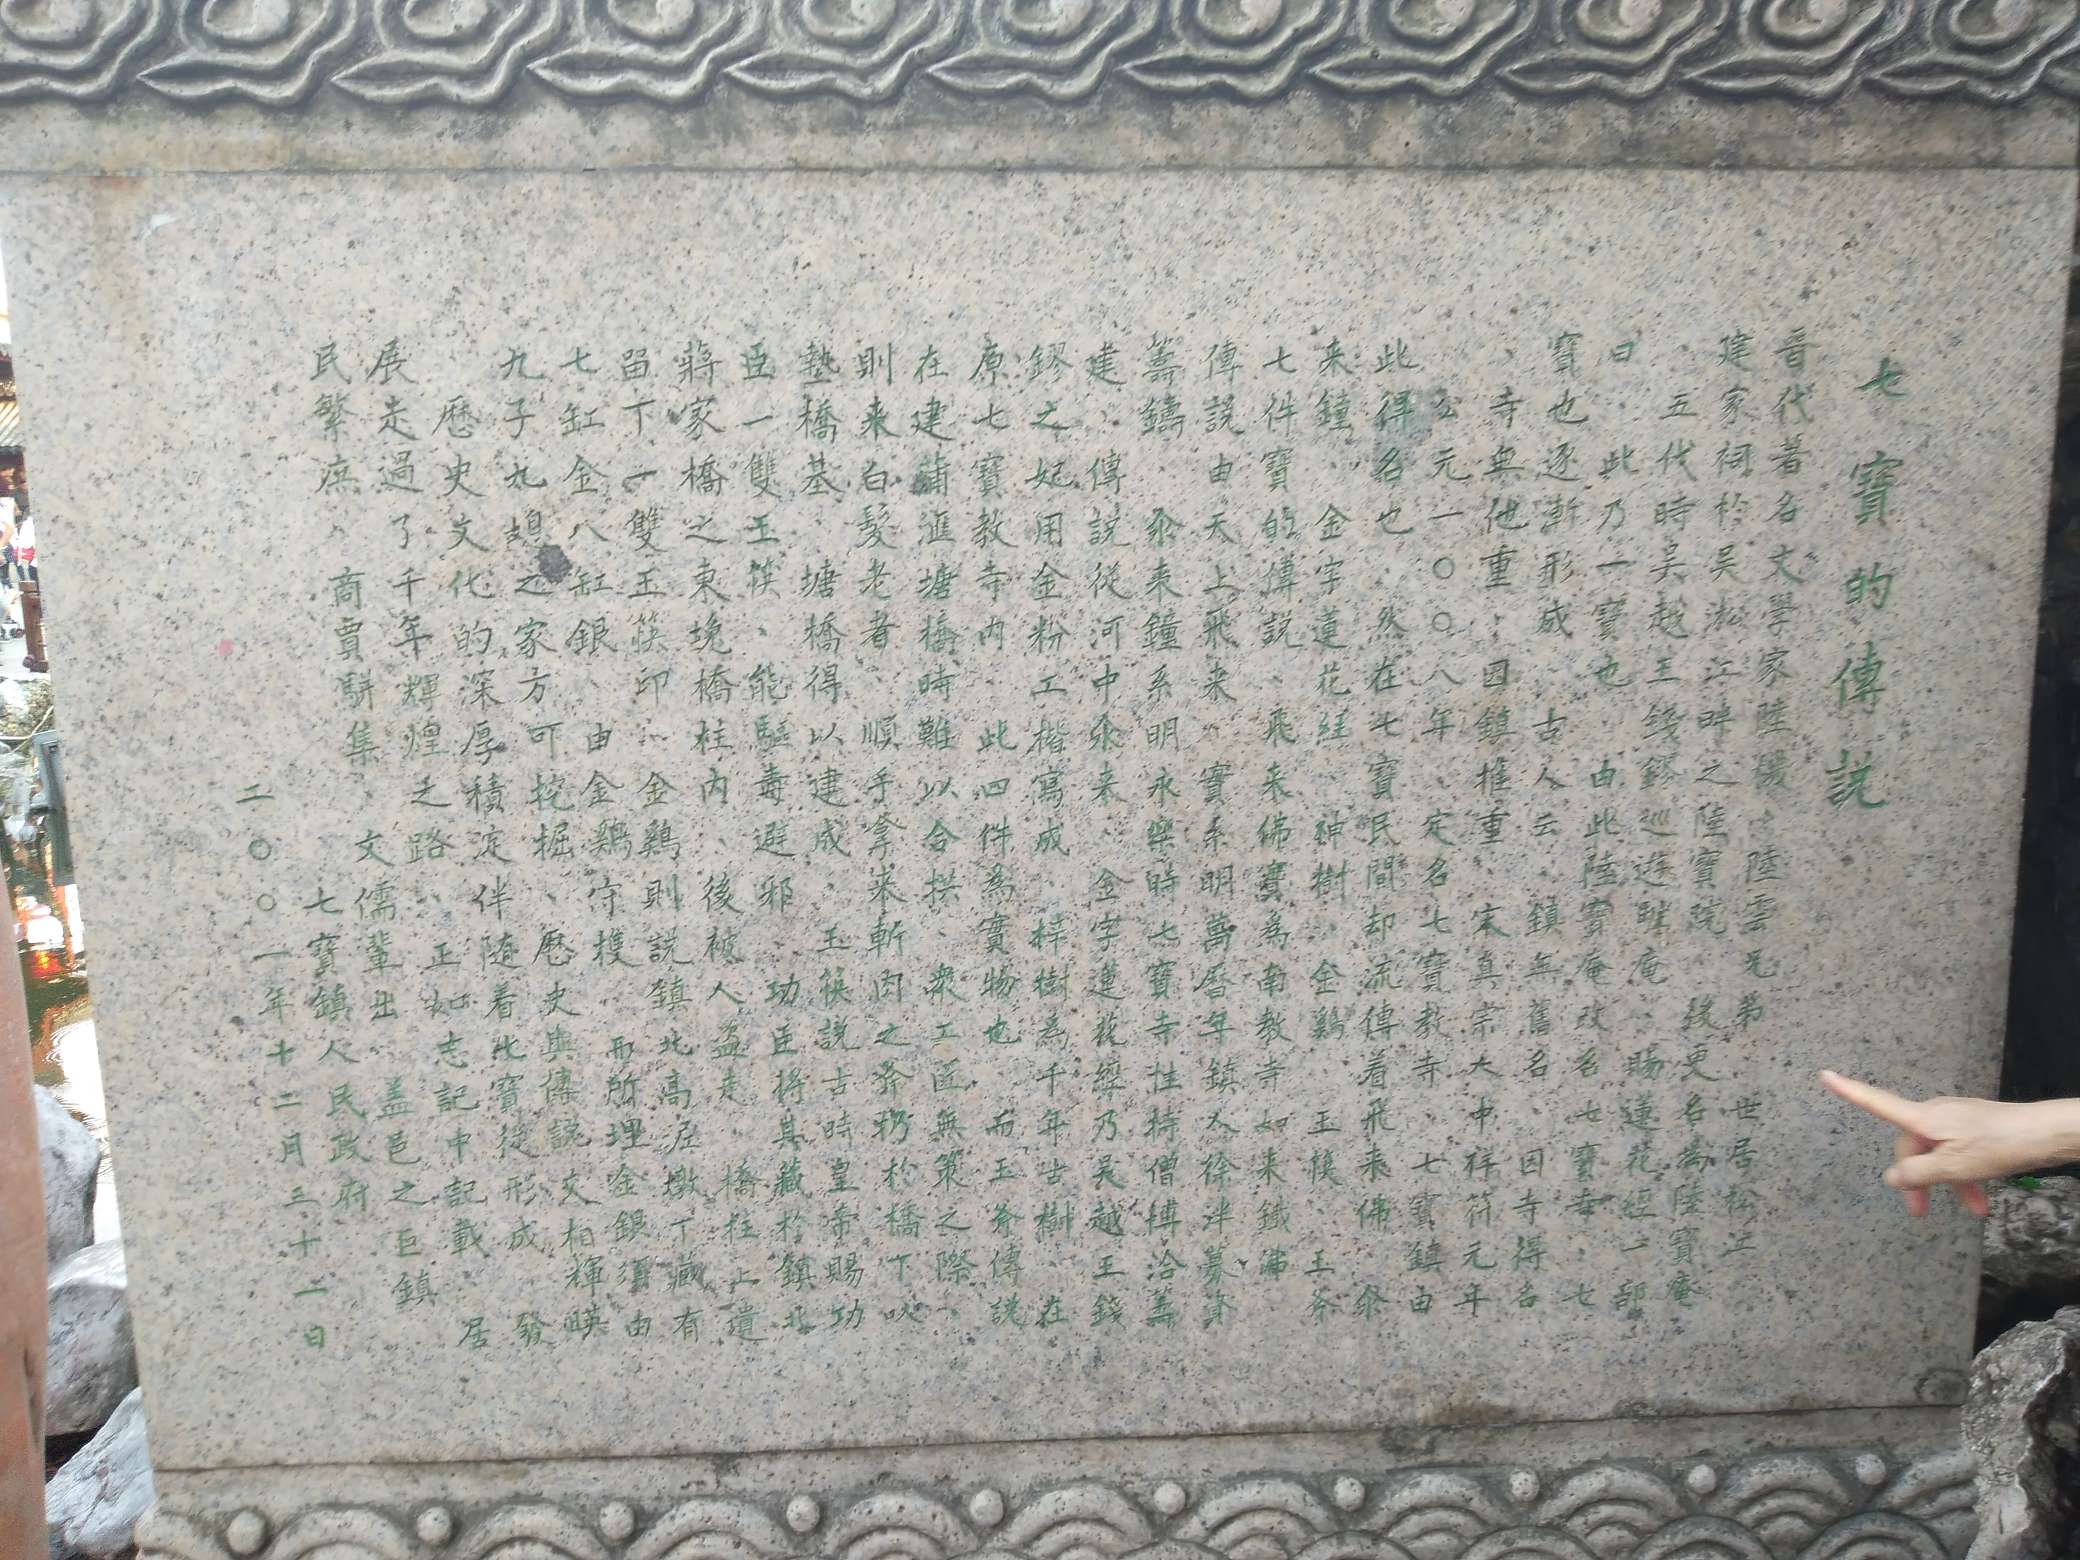 七寶的傳説
晉代著名文學家陸機、陸雲兄弟、世居松江
建家祠於吳淞江畔之陸寶院、後更名為陸寶庵
、五代時吳越王錢鏐巡遊駐庵、賜蓮花經一部
曰、此乃一寶也、由此陸寶庵改名七寶寺、七
寶也逐漸形成、古人云、鎮年舊名、因寺得名
、寺無他重、因鎮推重、宋真宗大中祥符元年
、公元一〇〇八年、定名七寶教寺、七寶鎮由
此得名也、然在七寶民間却流傳着飛来佛、氽
来鐘、金字蓮花經、神樹、金鷄、玉筷、玉斧
七件寶的傳説、飛来佛實為南教寺如来鐵沸、
傳説由天上飛来、實系明萬曆年鎮人徐泮募資
籌鑄、氽来鐘系明永樂時七寶寺住持僧博洽籌
建、傳説從河中氽来、金字蓮花經乃吳越王錢
鏐之妃用金粉工楷寫成、梓樹為千年古樹、在
原七寶教寺内、此四件為實物也、而玉斧傳説
在建蒲滙塘橋時難以合拱、衆工匠無策之際、
則来白髮老者、順手拿来斬肉之斧扔於橋下以
墊橋基、塘橋得以建成、玉筷説古時皇帝賜功
臣一雙玉筷、能驅毒避邪、功臣將其藏於鎮北
蔣家橋之東堍橋柱内、後被人盗走、橋柱上遺
留下一雙玉筷印、金鷄則説鎮北高泥墩下藏有
七缸金八缸銀、由金鷄守檴、而所埋金銀須由
九子九媳之家方可挖掘、歷史與傳説交相輝暎
、歷史文化的深厚積淀伴随着七寶從形成、發
展走過了千年輝煌之路、正如志記中記載、居
民繁庶、商賈駢集、文儒輩出、盖邑之巨鎮
七寶鎮人民政府
二〇〇一年十二月三十一日